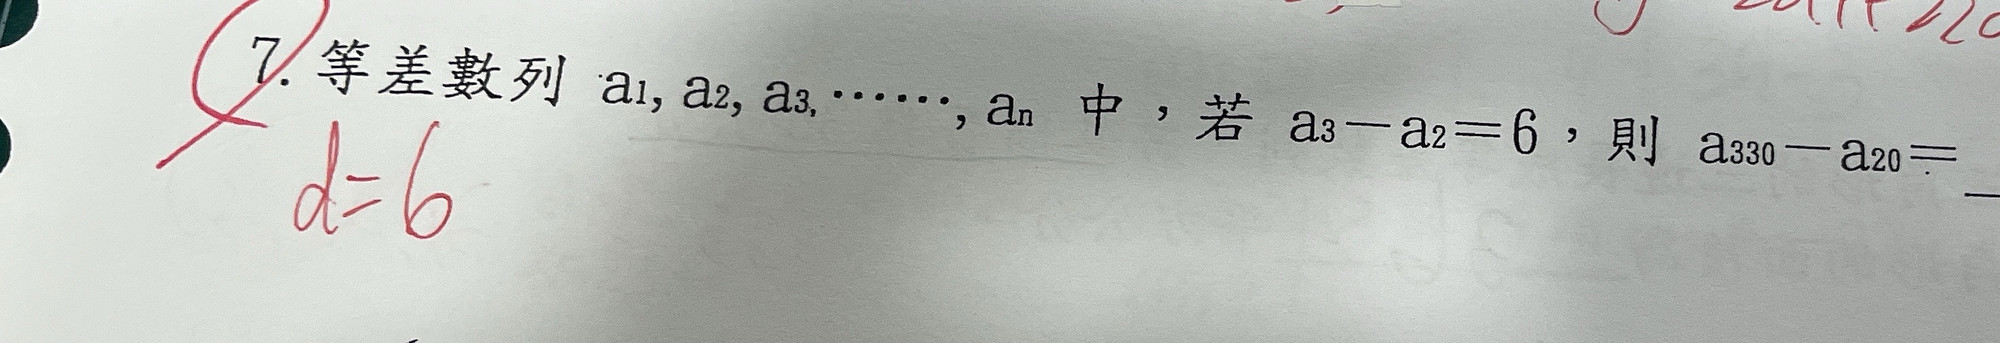 7. 等差數列 a1, a2, a3, ⋯⋯, an 中，若 a3－a2＝6，則 a330－a20＝
d=6